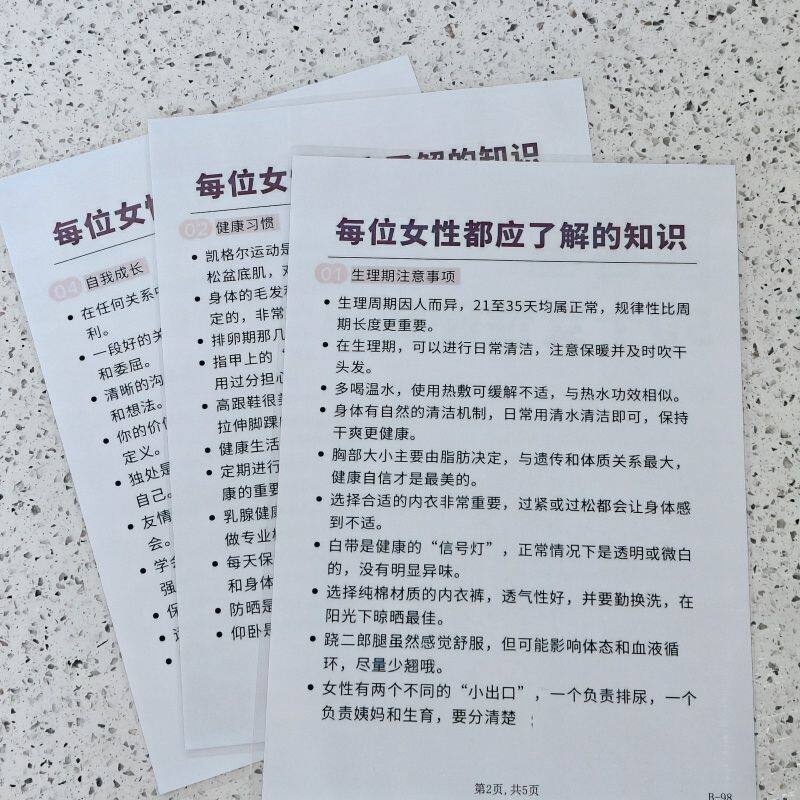 每位女性都应了解的知识
01 生理期注意事项
• 生理周期因人而异，21至35天均属正常，规律性比周
期长度更重要。
• 在生理期，可以进行日常清洁，注意保暖并及时吹干
头发。
• 多喝温水，使用热敷可缓解不适，与热水功效相似。
• 身体有自然的清洁机制，日常用清水清洁即可，保持
干爽更健康。
• 胸部大小主要由脂肪决定，与遗传和体质关系最大，
健康自信才是最美的。
• 选择合适的内衣非常重要，过紧或过松都会让身体感
到不适。
• 白带是健康的“信号灯”，正常情况下是透明或微白
的，没有明显异味。
• 选择纯棉材质的内衣裤，透气性好，并要勤换洗，在
阳光下晾晒最佳。
• 跷二郎腿虽然感觉舒服，但可能影响体态和血液循
环，尽量少翘哦。
• 女性有两个不同的“小出口”，一个负责排尿，一个
负责姨妈和生育，要分清楚
第2页，共5页
B-98
每位女 了解的知识
02 健康习惯
• 凯格尔运动是
松盆底肌，
• 身体的毛发
定的，非常
• 排卵期那几
• 指甲上的“
用过分担心
• 高跟鞋很
拉伸脚踝
• 健康生活
• 定期进行
康的重要
• 乳腺健康
做专业
• 每天保
和身体
• 防晒是
• 仰卧是
每位女
04 自我成长
• 在任何关系中
利。
• 一段好的关
和委屈。
• 清晰的沟
和想法。
• 你的价值
定义。
• 独处是
自己。
• 友情
会。
• 学会
强
• 保
•
•